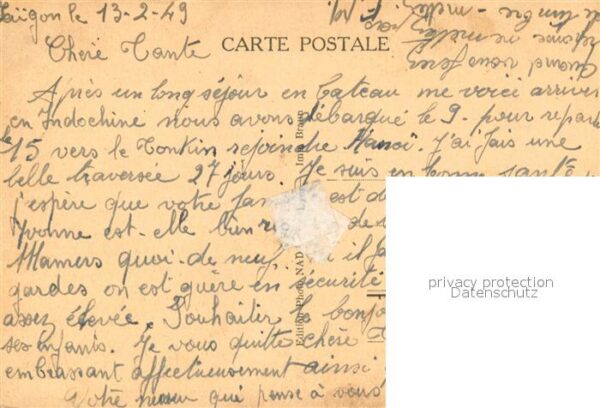 Saïgon le 13-2-49
Chère Tante
CARTE POSTALE
Après un long séjour en bateau me voici arriver
en Indochine nous avons débarqué le 9. pour repar
le 15 vers le Tonkin rejoindre Hanoï. J'ai fais une
belle traversée 27 jours. Je suis en bonne santé
j'espère que votre fam est de
Yvonne est-elle bien de
Mamers quoi-de neuf. il fa
gardes on est guère en sécurité
assez élevée. Souhaiter le bonjo
ses enfants. Je vous quitte chère T
embrassant affectueusement ainsi
Votre neveu qui pense à vous
Quand vous ferez
réponse ne mettez
pas
de timbre
Edition Photo NAD
Imp. Braun
privacy protection
Datenschutz